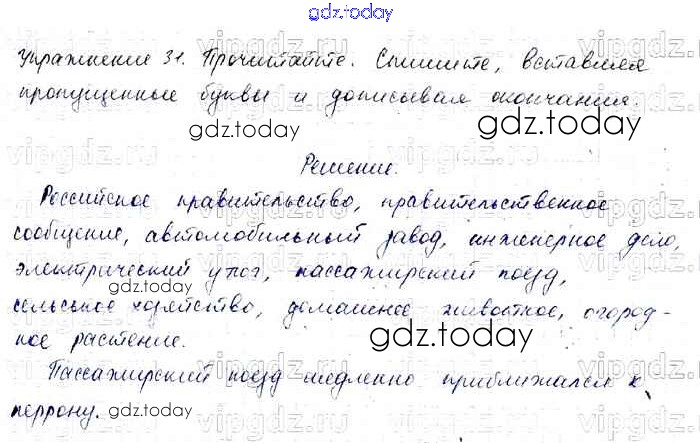 gdz.today
Упражнение 31. Прочитайте. Спишите, вставляя
пропущенные буквы и дописывая окончания.
gdz.today
gdz.today
Решение.
Российское правительство, правительственное
сообщение, автомобильный завод, инженерное дело,
электрический утюг, пассажирский поезд,
gdz.today
сельское хозяйство, домашнее животное, огород-
ное растение.
gdz.today
Пассажирский поезд медленно приближался к
перрону.
gdz.today